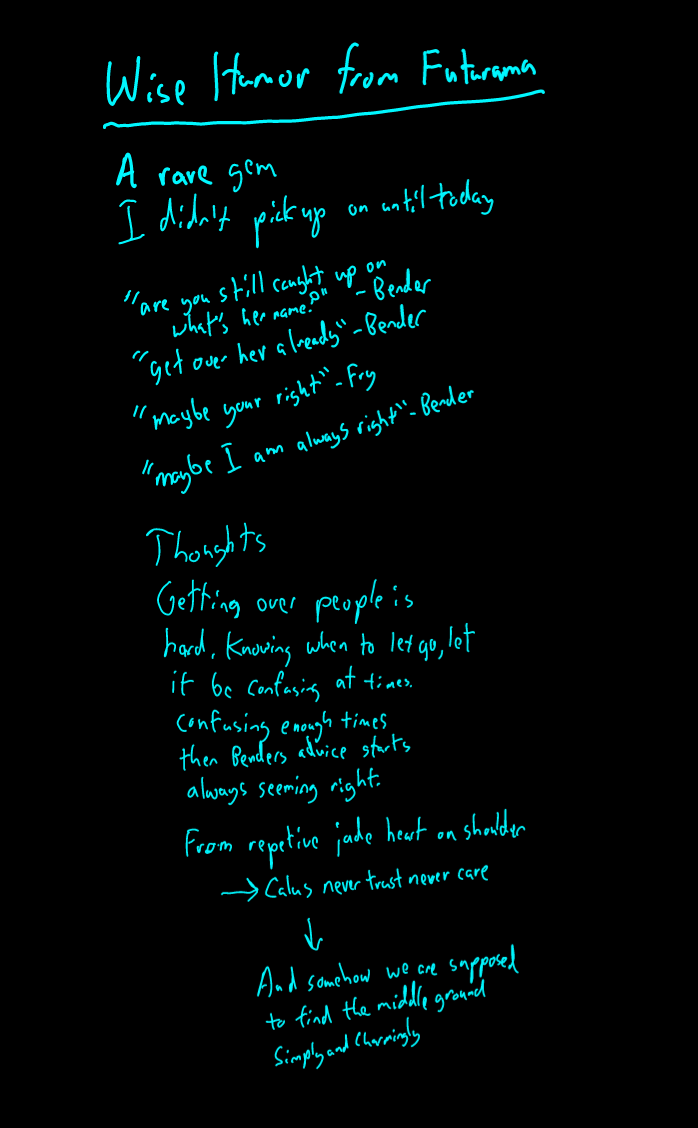 Wise Humor from Futurama
A rare gem
I didn't pick up on until today
"are you still caught up on
what's her name?" - Bender
"get over her already" - Bender
"maybe your right" - Fry
"maybe I am always right" - Bender
Thoughts
Getting over people is
hard. Knowing when to let go, let
it be confusing at times.
Confusing enough times
then Benders advice starts
always seeming right.
From repetive jade heart on shoulder
→ Calus never trust never care
↓
And somehow we are supposed
to find the middle ground
Simply and Charmingly